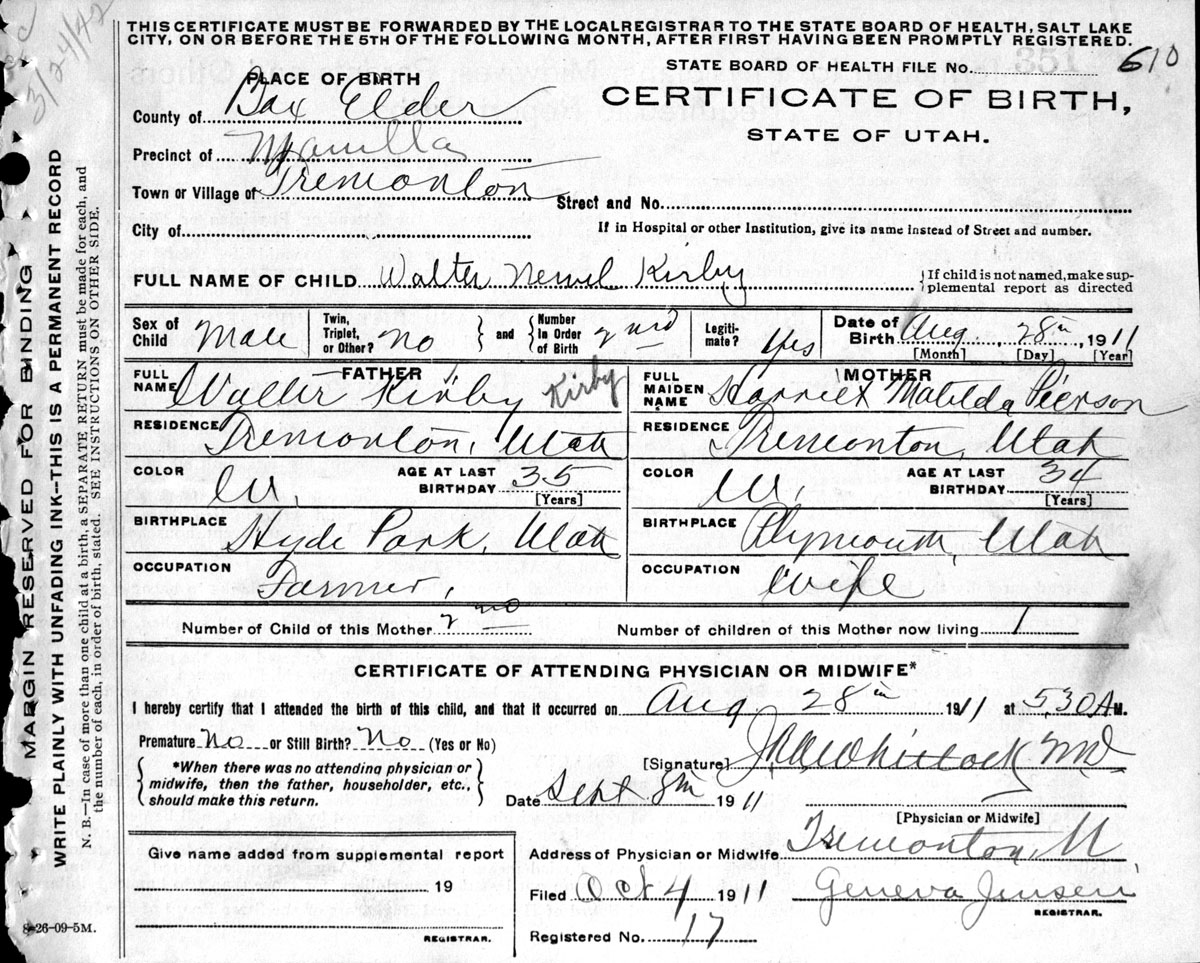 THIS CERTIFICATE MUST BE FORWARDED BY THE LOCAL REGISTRAR TO THE STATE BOARD OF HEALTH, SALT LAKE
CITY, ON OR BEFORE THE 5TH OF THE FOLLOWING MONTH, AFTER FIRST HAVING BEEN PROMPTLY REGISTERED.
3/24/42
PLACE OF BIRTH
STATE BOARD OF HEALTH FILE No. 351 610
County of Box Elder
CERTIFICATE OF BIRTH,
STATE OF UTAH.
Precinct of Manilla
Town or Village of Tremonton
Street and No.
City of
If in Hospital or other Institution, give its name instead of Street and number.
FULL NAME OF CHILD Walter Kirby
{If child is not named, make sup-
plemental report as directed
Sex of Child Male
Twin, Triplet, or Other? No
and
Number in Order of Birth 2nd
Legiti-mate? Yes
Date of Birth Aug. 28th, 1911
[Month] [Day] [Year]
FATHER
FULL NAME Walter Kirby Kirby
MOTHER
FULL MAIDEN NAME Harriet Matilda Pierson
RESIDENCE Tremonton, Utah
RESIDENCE Tremonton, Utah
COLOR W. AGE AT LAST BIRTHDAY 35 [Years]
COLOR W. AGE AT LAST BIRTHDAY 34 [Years]
BIRTHPLACE Hyde Park, Utah
BIRTHPLACE Plymouth, Utah
OCCUPATION Farmer,
OCCUPATION Wife
Number of Child of this Mother 2nd
Number of children of this Mother now living 1
CERTIFICATE OF ATTENDING PHYSICIAN OR MIDWIFE*
I hereby certify that I attended the birth of this child, and that it occurred on Aug. 28th 1911 at 5,30 A M.
Premature No or Still Birth? No (Yes or No)
[Signature] Whitlock MD
*When there was no attending physician or
midwife, then the father, householder, etc.,
should make this return.
Date Sept 8th 1911
[Physician or Midwife]
Give name added from supplemental report
19
REGISTRAR.
Address of Physician or Midwife Tremonton, U
Filed Oct 4 1911 Geneva Jensen
REGISTRAR.
Registered No. 17
8-26-09-5M.
MARGIN RESERVED FOR BINDING
WRITE PLAINLY WITH UNFADING INK--THIS IS A PERMANENT RECORD
N. B.—In case of more than one child at a birth, a SEPARATE RETURN must be made for each, and
the number of each, in order of birth, stated. SEE INSTRUCTIONS ON OTHER SIDE.